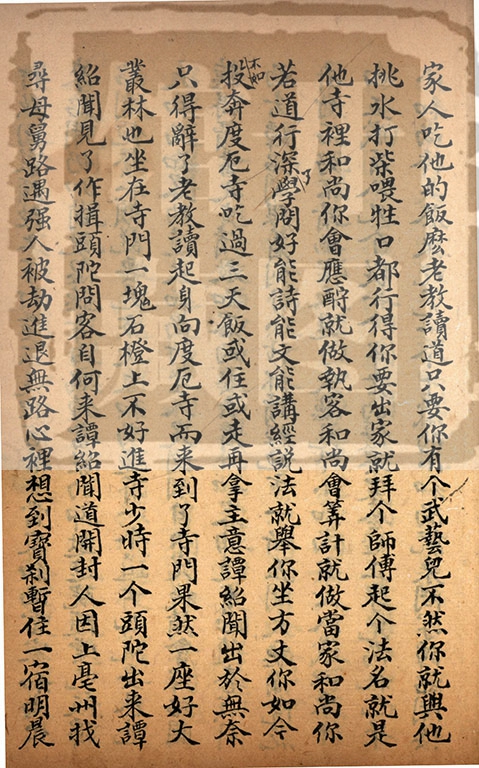 家人吃他的飯麽老教讀道只要你有个武藝兒不然你就與他
挑水打柴喂牲口都行得你要出家就拜个師傅起个法名就是
他寺裡和尚你會應酧就做執客和尚會筭計就做當家和尚你
若道行深了學問好能詩能文能講經説法就舉你坐方丈你如今
不如投奔度厄寺吃過三天飯或住或走再拿主意譚紹聞出於無奈
只得辭了老教讀起身向度厄寺而来到了寺門果然一座好大
叢林也坐在寺門一塊石橙上不好進寺少時一个頭陀出来譚
紹聞見了作揖頭陀問客自何来譚紹聞道開封人因上亳州找
尋母舅路遇强人被劫進退無路心裡想到寳刹暫住一宿明晨